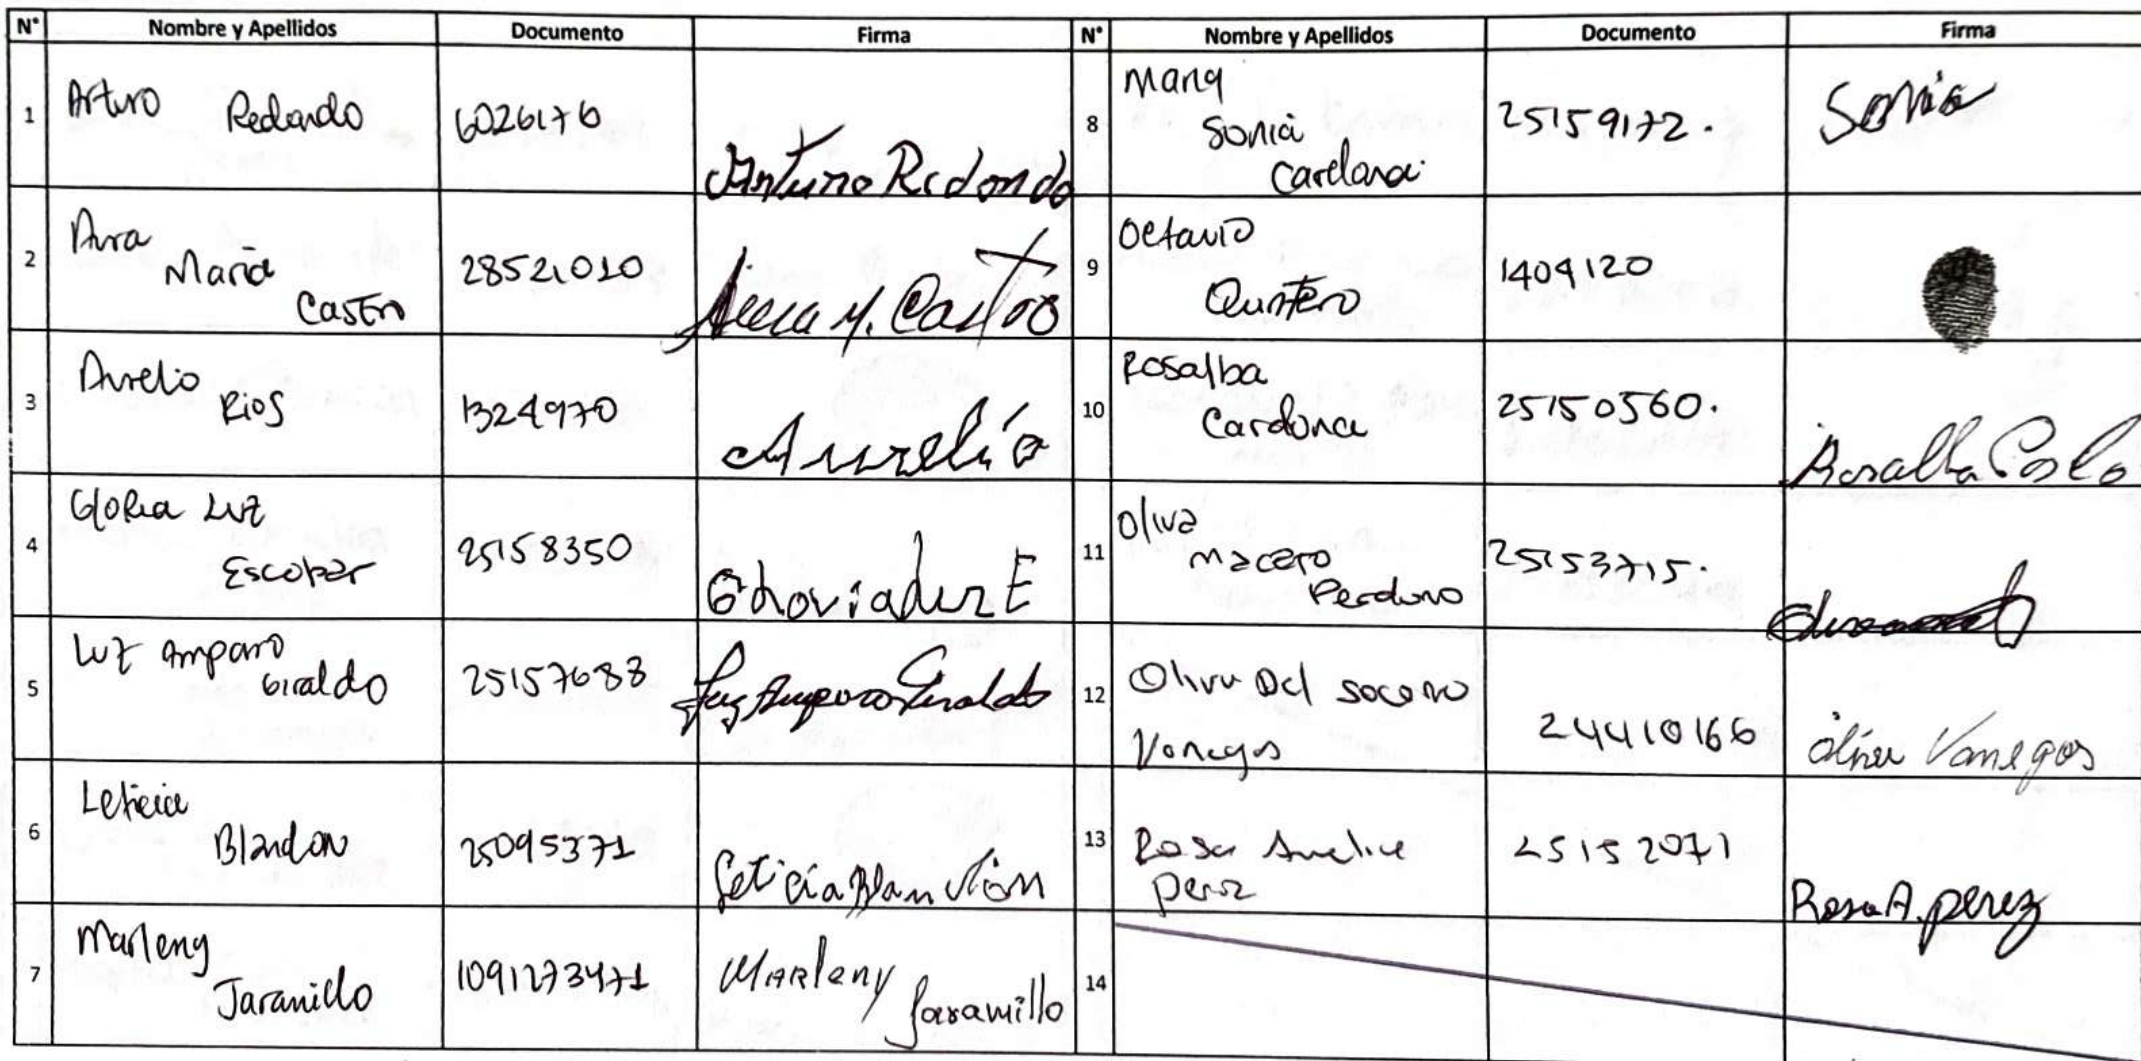 N° Nombre y Apellidos Documento Firma N° Nombre y Apellidos Documento Firma
1 Arturo Redondo 6026176 Arturo Redondo
2 Aura Maria Castro 28521010 Aura M. Castro
3 Aurelio Rios 1324970 Aurelio
4 Gloria Luz Escobar 25158350 Gloria Luz E
5 Luz Amparo Giraldo 25157688 Luz Amparo Giraldo
6 Leticia Blandon 25095371 Leticia Blandon
7 Marleny Jaramillo 1091273471 Marleny Jaramillo
8 Maria Sonia 25159172. Sonia
9 Octavio Quintero 1404120
10 Rosalba Cardona 25150560. Rosalba
11 Oliva Perdomo 25153715.
12 Oliva Del Socorro Vanegas 24410166 Oliva Vanegas
13 Rosa Amelia Perez 25152071 Rosa A. perez
14